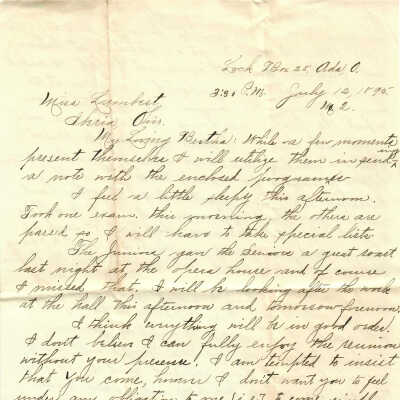 Lock Box 25, Ada O.
3:30 P.M. July 12, 1895
No 2.
Miss Lumbert,
Ohio.
My Loving Bertha: While a few moments
present themselves I will utilize them in send
ing
a note with the enclosed programs
I feel a little sleepy this afternoon.
Took one exam. this morning, the others are
passed so I will have to take special lists
The Juniors gave the Seniors a great roast
last night at the opera house and of course
I missed that, I will be looking after the work
at the hall this afternoon and tomorrow forenoon.
I think everything will be in good order.
I don't believe I can fully enjoy the reunion
without your presence. I am tempted to insist
that you come, however I don't want you to feel
under any obligation to me